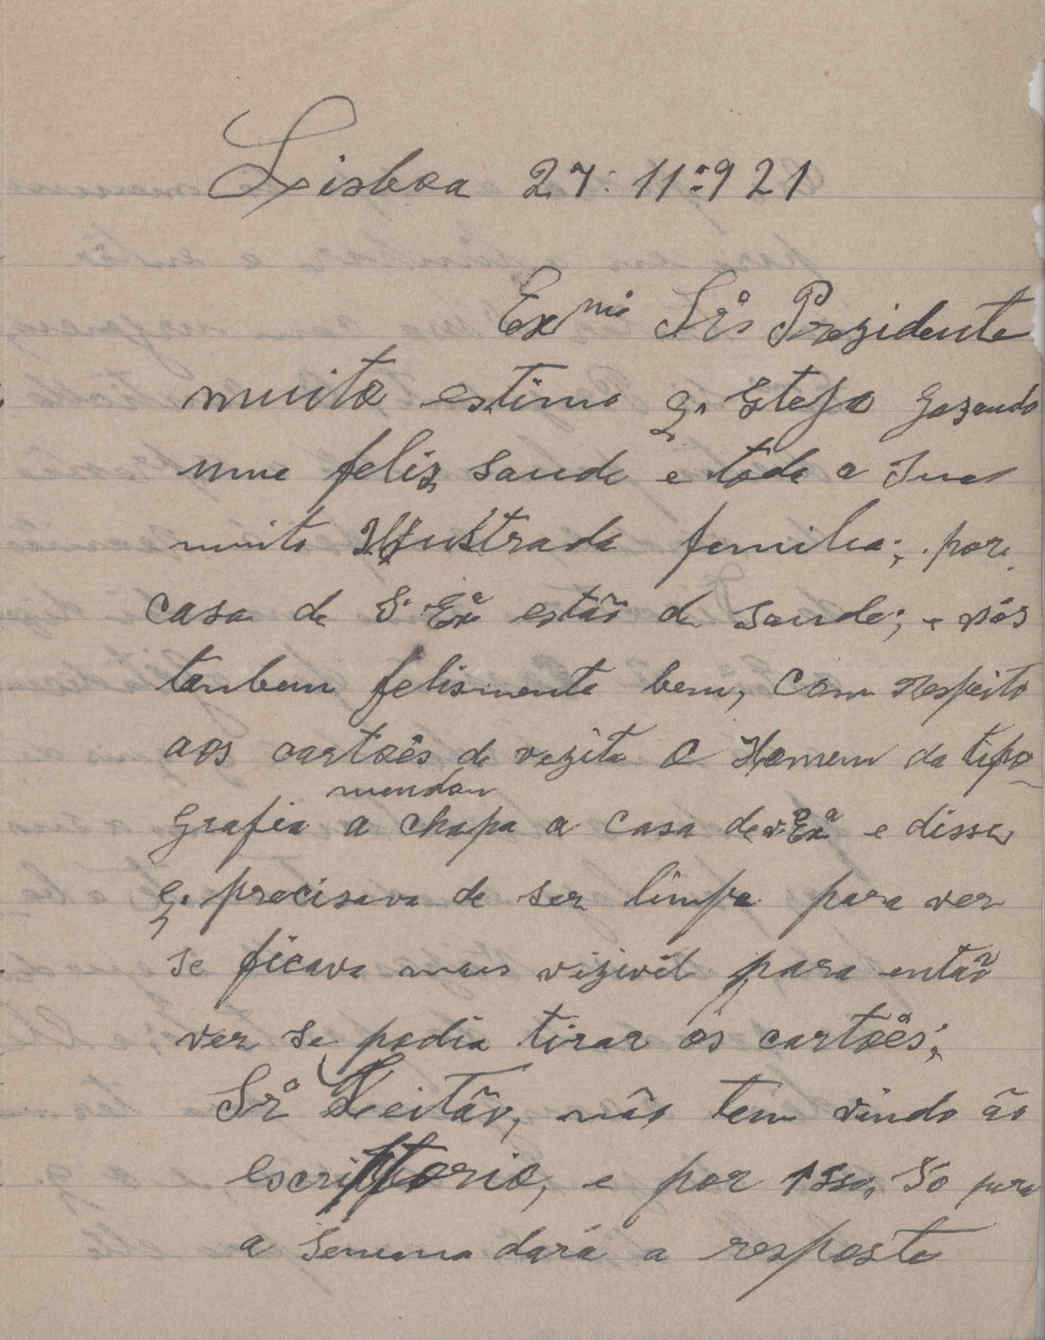 Lisboa 27: 11:921
Exmo Sro Prezidente
muito estimo q. Esteja gozando
uma feliz saude e toda a sua
muito Illustrada familia; por
casa de S. Exa estão de saude; e nós
tanbem felismente bem, com respeito
aos cartoês de vezita O Homem da tipo
mandou
grafia a chapa a casa de v. Exa e disse
q. precisava de ser limpa para ver
se ficava mais vizivél para então
ver se podia tirar os cartoês;
Sro Leitão, não tem vindo ão
escriptorio, e por isso, só para
a semana dará a resposta